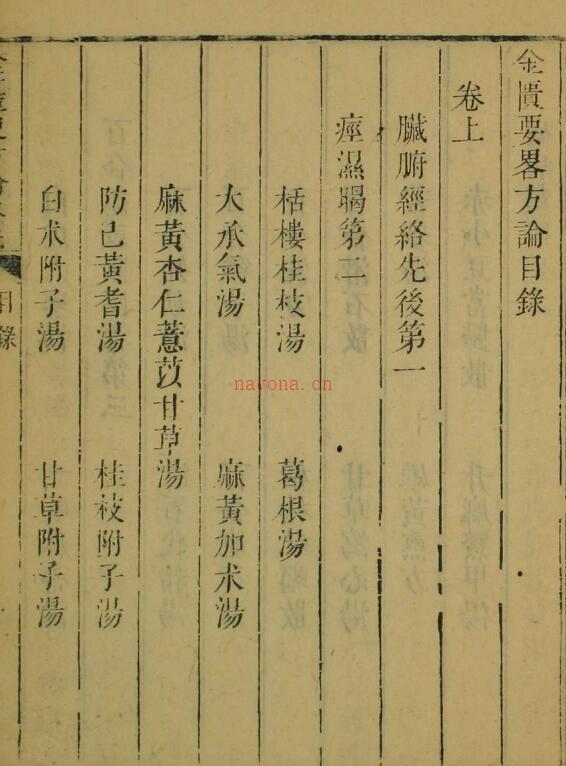 金匱要畧方論目錄
卷上
臟腑經絡先後第一
痓濕暍第二
栝樓桂枝湯 葛根湯
大承氣湯 麻黃加朮湯
麻黃杏仁薏苡甘草湯
防己黃耆湯 桂枝附子湯
白朮附子湯 甘草附子湯
目錄
navona.cn